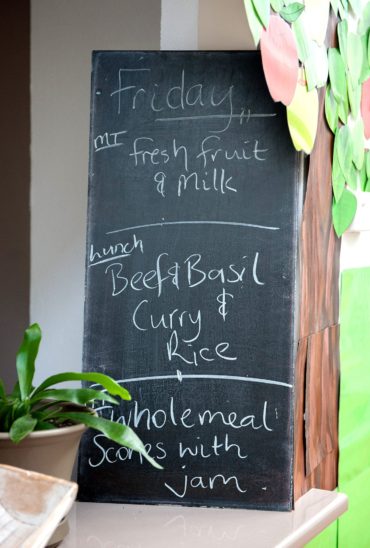 Friday
MT
fresh fruit
& Milk
Lunch
Beef & Basil
Curry &
Rice
Wholemeal
Scones with
jam